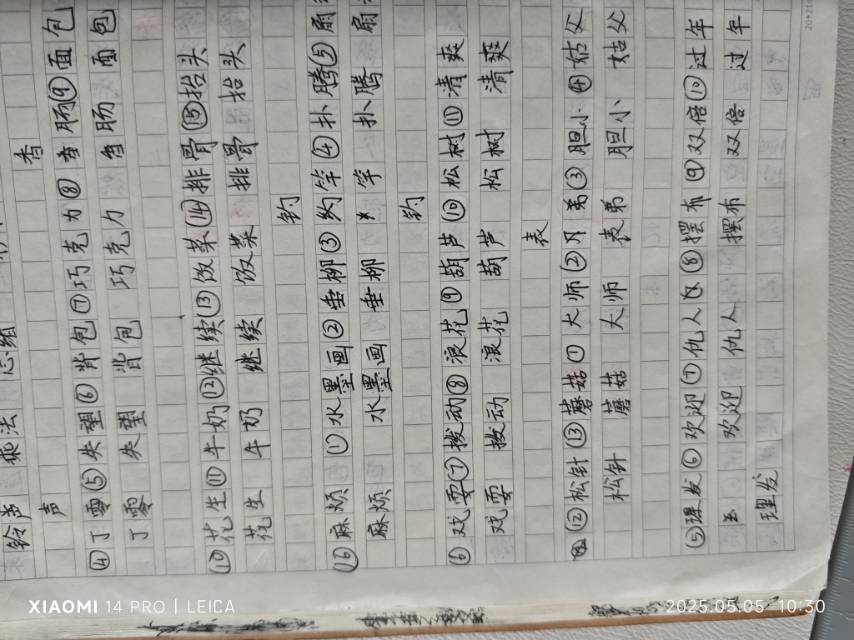 乘法 总结
香
声
④丁零⑤失望⑥背包⑦巧克力⑧香肠⑨面包
丁零 失望 背包 巧克力 香肠 面包
⑩花生⑪牛奶⑫继续⑬饭菜⑭排骨⑮抬头
花生 牛奶 继续 饭菜 排骨 抬头
钓
⑯麻烦 ①水墨画②垂柳③钓竿④扑腾⑤扇
麻烦 水墨画 垂柳 竿 扑腾 扇
钓
⑥戏耍⑦拨动⑧浪花⑨葫芦⑩松树⑪清爽
戏耍 拨动 浪花 葫芦 松树 清爽
表
⑫松针⑬蘑菇①大师②弟③胆小④姑父
松针 蘑菇 大师 表弟 胆小 姑父
⑤理发⑥欢迎⑦仇人⑧摆布⑨双倍⑩过年
欢迎 仇人 摆布 双倍 过年
理发
XIAOMI 14 PRO | LEICA
2025.05.05 10:30